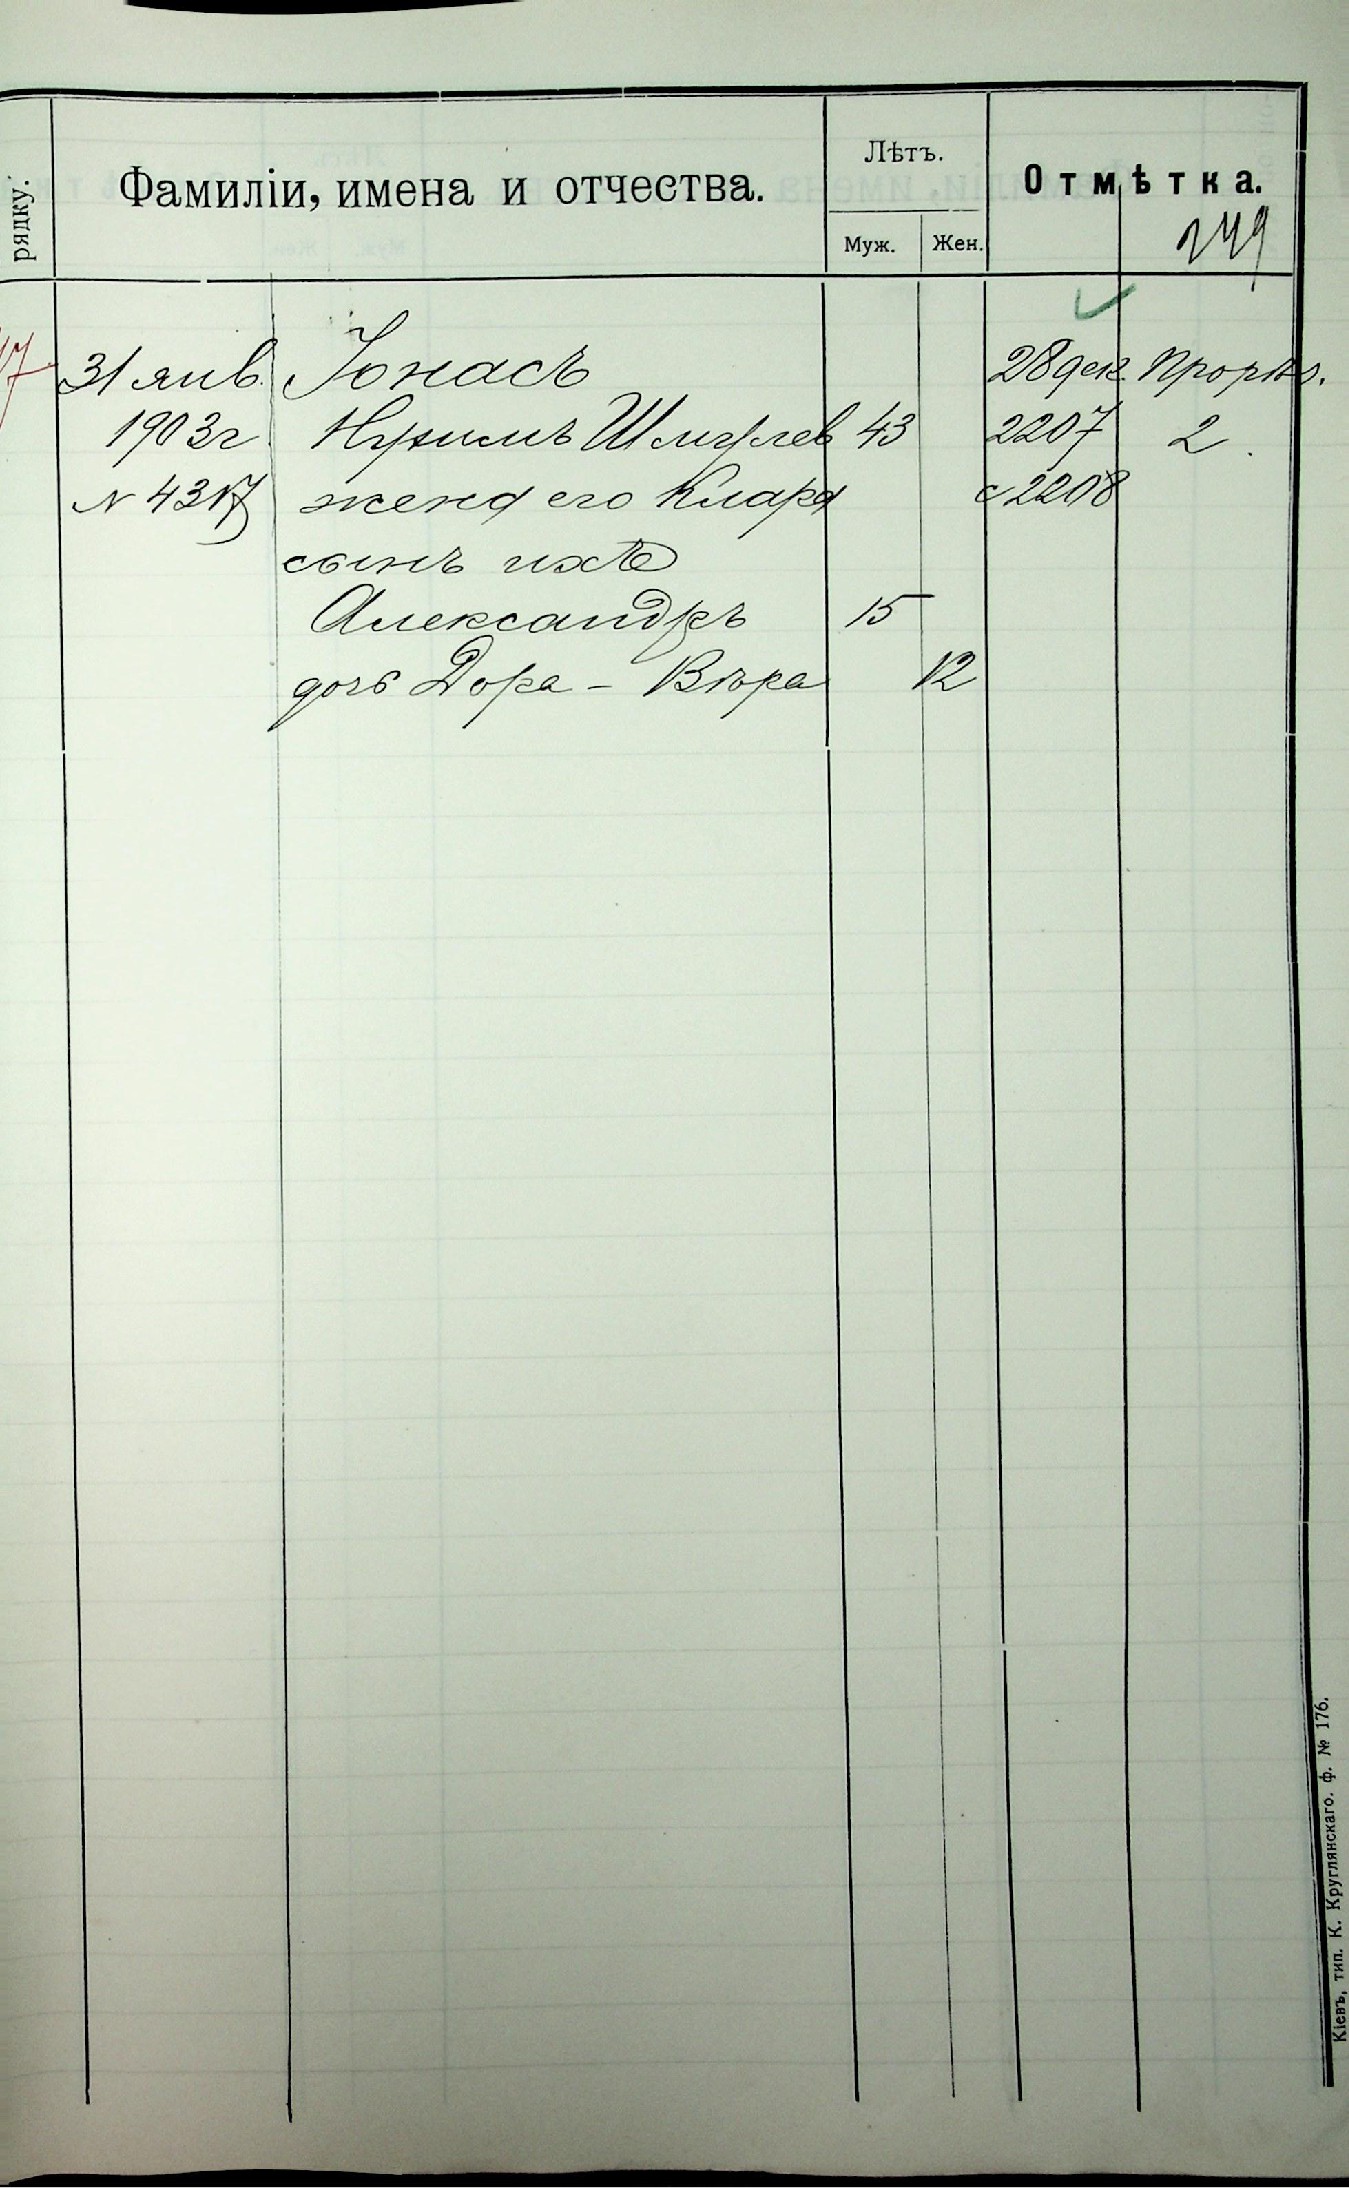 рядку.
Фамиліи, имена и отчества.
Лѣтъ.
Муж. Жен.
Отмѣтка.
249
17
31 янв. Іонасъ 28 дек.
1903 г Шмулев 43 2207 2
№ 4317 жена его Клара с 2208
сынъ ихъ
Александръ 15
дочь Дора - Вѣра 12
Кіевъ, тип. К. Круглянскаго. ф. № 176.